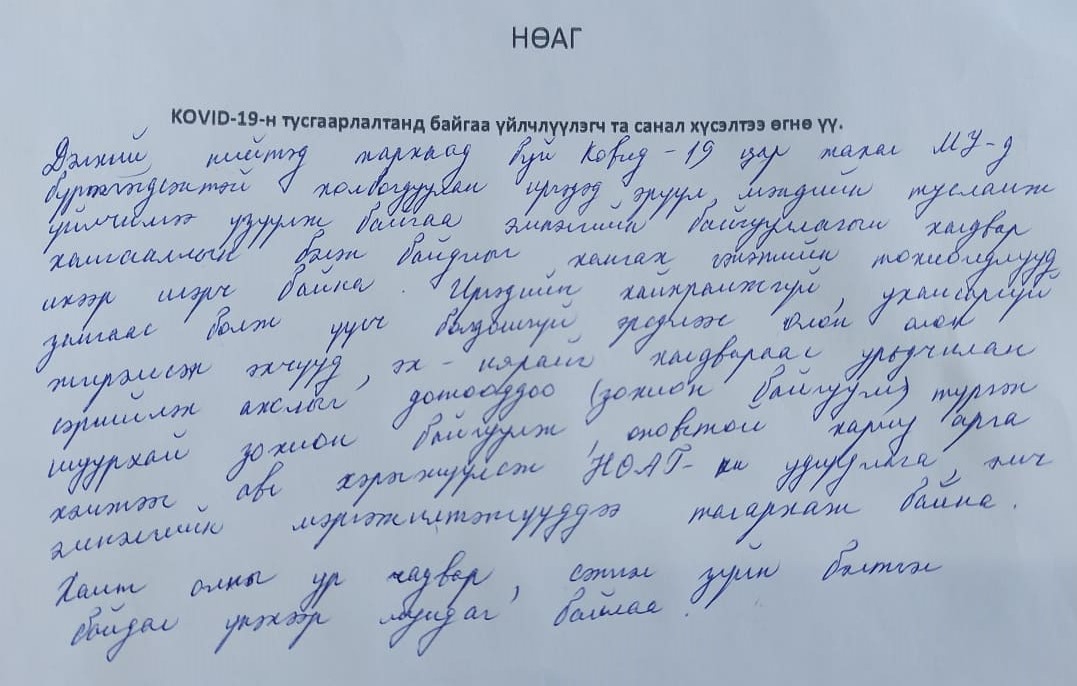 НӨАГ
KOVID-19-н тусгаарлалтанд байгаа үйлчлүүлэгч та санал хүсэлтээ өгнө үү.
Дэлхий нийтэд тархаад буй Ковид-19 цар тахал МУ-д
бүртгэгдсэнтэй холбогдуулан иргэдэд эрүүл мэндийн тусламж
үйлчилгээ үзүүлж байгаа эмнэлгийн байгууллагын халдвар
хамгааллын бэлэн байдлыг хангах гэнэтийн тохиолдлууд
ихээр гарч байна. Иргэдийн хайхрамжгүй, ухамсаргүй
зангаас болж үүсч болошгүй эрсдлээс олон олон
жирэмсэн эхчүүд, эх-нярайг халдвараас урьдчилан
сэргийлэх ажлыг дотооддоо (зохион байгуулж) түргэн
шуурхай зохион байгуулж, оновчтой хариу арга
хэмжээ авч хэрэгжүүлсэн НӨАГ-ын удирдлага, эмч
эмнэлгийн мэргэжилтэнгүүддээ талархаж байна.
Хамт олны ур чадвар, сэтгэл зүйн бэлтгэл
байдал үнэхээр мундаг байлаа.